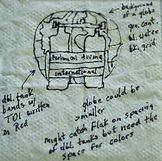 background
of a globe
gen. cont
bl. water
blk. grid
technical diving
international
dbl. tank
bands w/
TDI written
in Red
globe could be
smaller
might catch flak on spacing
of dbl. tanks but need the
space for colors